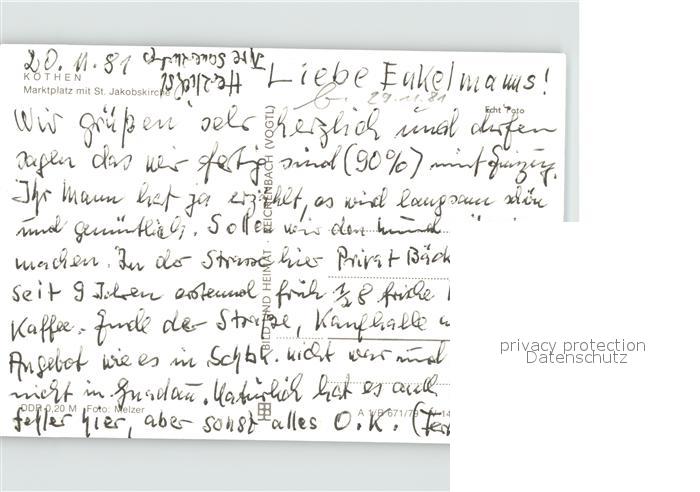 20.11.81
Herzlichst Ihre
KÖTHEN
Marktplatz mit St. Jakobskirche
Liebe Enkelmanns!
29.11.81
Echt Foto
Wir grüßen sehr herzlich und dürfen
sagen das wir fertig sind (90%) mit
Ihr Mann hat ja erzählt, es wird langsam schön
und gemütlich. Sollen wir den Mund
machen. In der Strasse hier Privat Bäck
seit 9 Jahren erstemal früh 1/2 8 frische
Kaffee. Ende der Straße, Kaufhalle
Angebot wie es in Schbk. nicht war und
nicht in Gnadau. Natürlich hat es auch
DDR 0,20 M Foto: Melzer
A 1/B 671/79
14
fehler hier, aber sonst alles O.K.
BILD UND HEIMAT · REICHENBACH (VOGTL)
privacy protection
Datenschutz